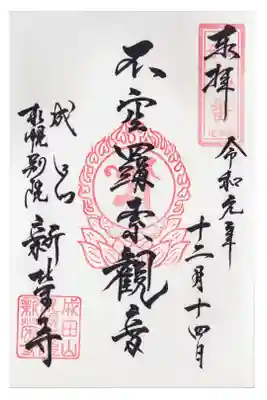 奉拝
令和元年
十二月十四日
不空羂索觀音
成田山
札幌別院
新榮寺
成田山